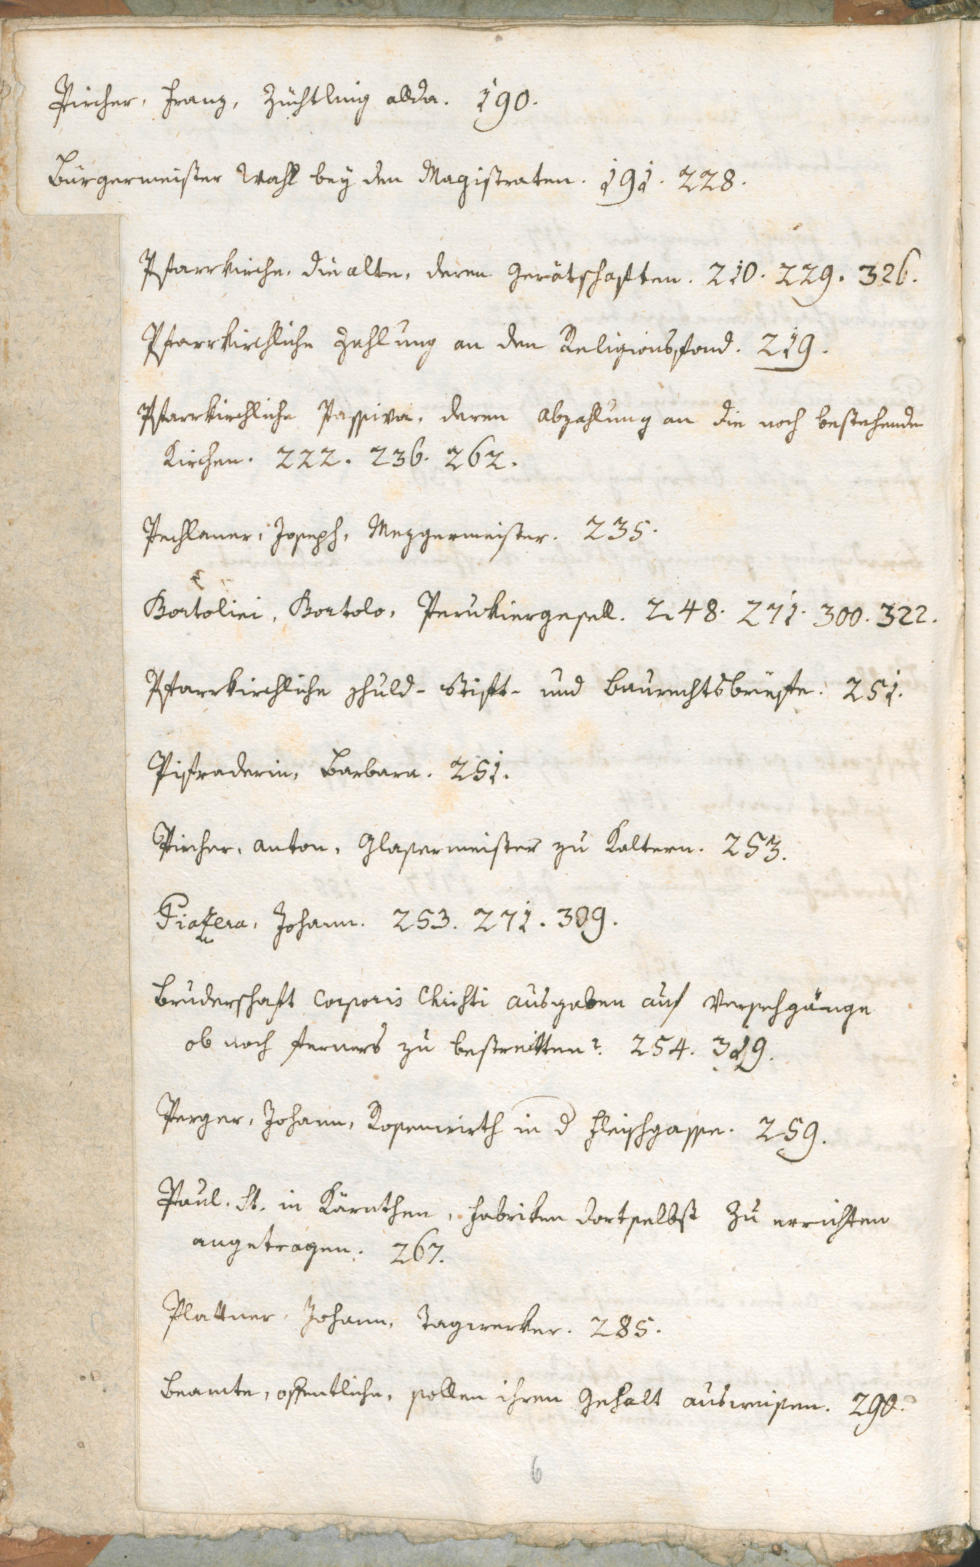 Pircher, Franz, Züchtling allda. 190.
Burgermeister Wahl bey den Magistraten. 191. 228.
Pfarrkirche, die alte, deren Gerätschaften. 210. 229. 326.
Pfarrkirchliche Zahlung an den Religionsfond. 219.
Pfarrkirchliche Passiva, deren Abzahlung an die noch bestehende
Kirchen. 222. 236. 262.
Pechlaner, Joseph, Mezgermeister. 235.
Bortoliei, Bortolo, Perukiergesell. 248. 271. 300. 322.
Pfarrkirchliche Schuld- Stift- und Baurechtsbriefe. 251.
Pistraderin, Barbara. 251.
Pircher, Anton, Glasermeister zu Kaltern. 253.
Johann. 253. 271. 309.
Bruderschaft Corporis Christi Ausgaben auf Versehgänge
ob noch ferners zu bestreitten? 254. 319.
Perger, Johann, Rosenwirth in d Fleischgasse. 259.
Paul. St. in Kärnthen, Fabriken dortselbst zu errichten
angetragen. 267.
Plattner Johann, Tagwerker. 285.
Beamte, offentliche, sollen ihren Gehalt ausweisen. 290.
6